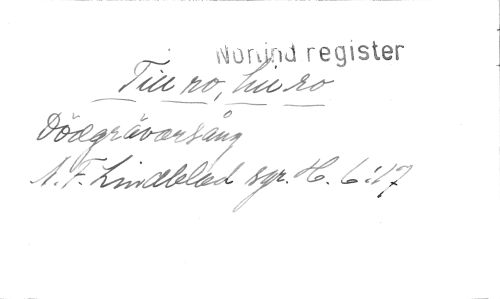 Norlind register
Till ro, till ro
Dödgrävarsång
A. F. Lindblad sgr. H. 6:17